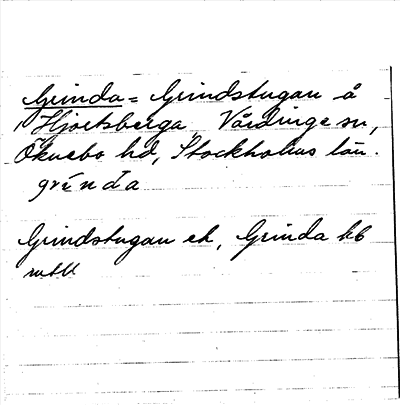 Grinda = Grindstugan å
Hjortsberga, Vårdinge sn,
Öknebo hd, Stockholms län.
grínda
Grindstugan ek, Grinda kb